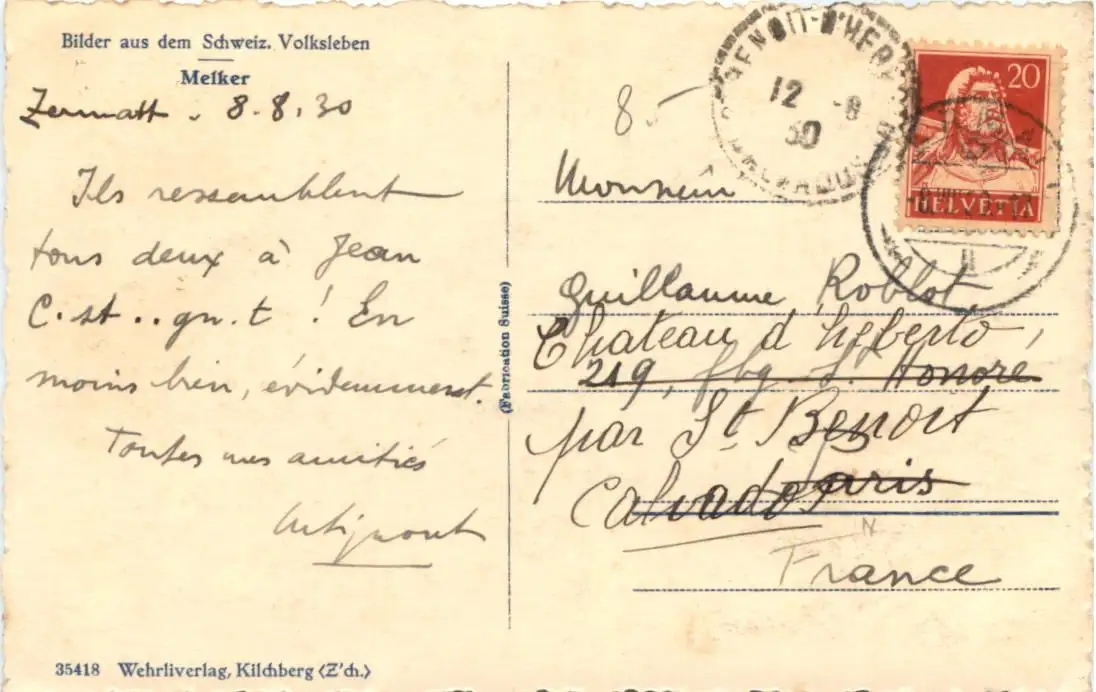 Bilder aus dem Schweiz. Volksleben
Melker
Zermatt. 8.8.30
Ils ressemblent
tous deux à Jean
C.st..gn.t ! En
moins bien, évidemment.
Toutes mes amitiés
(Fabrication Suisse)
85
12 -8
30
CALVADOS
20
HELVETIA
Monsieur
Guillaume Roblot
Chateau d'heberto,
219, fbg. St Honoré
par St Benoit
Paris
Calvados
France
35418 Wehrliverlag, Kilchberg (Z'ch.)